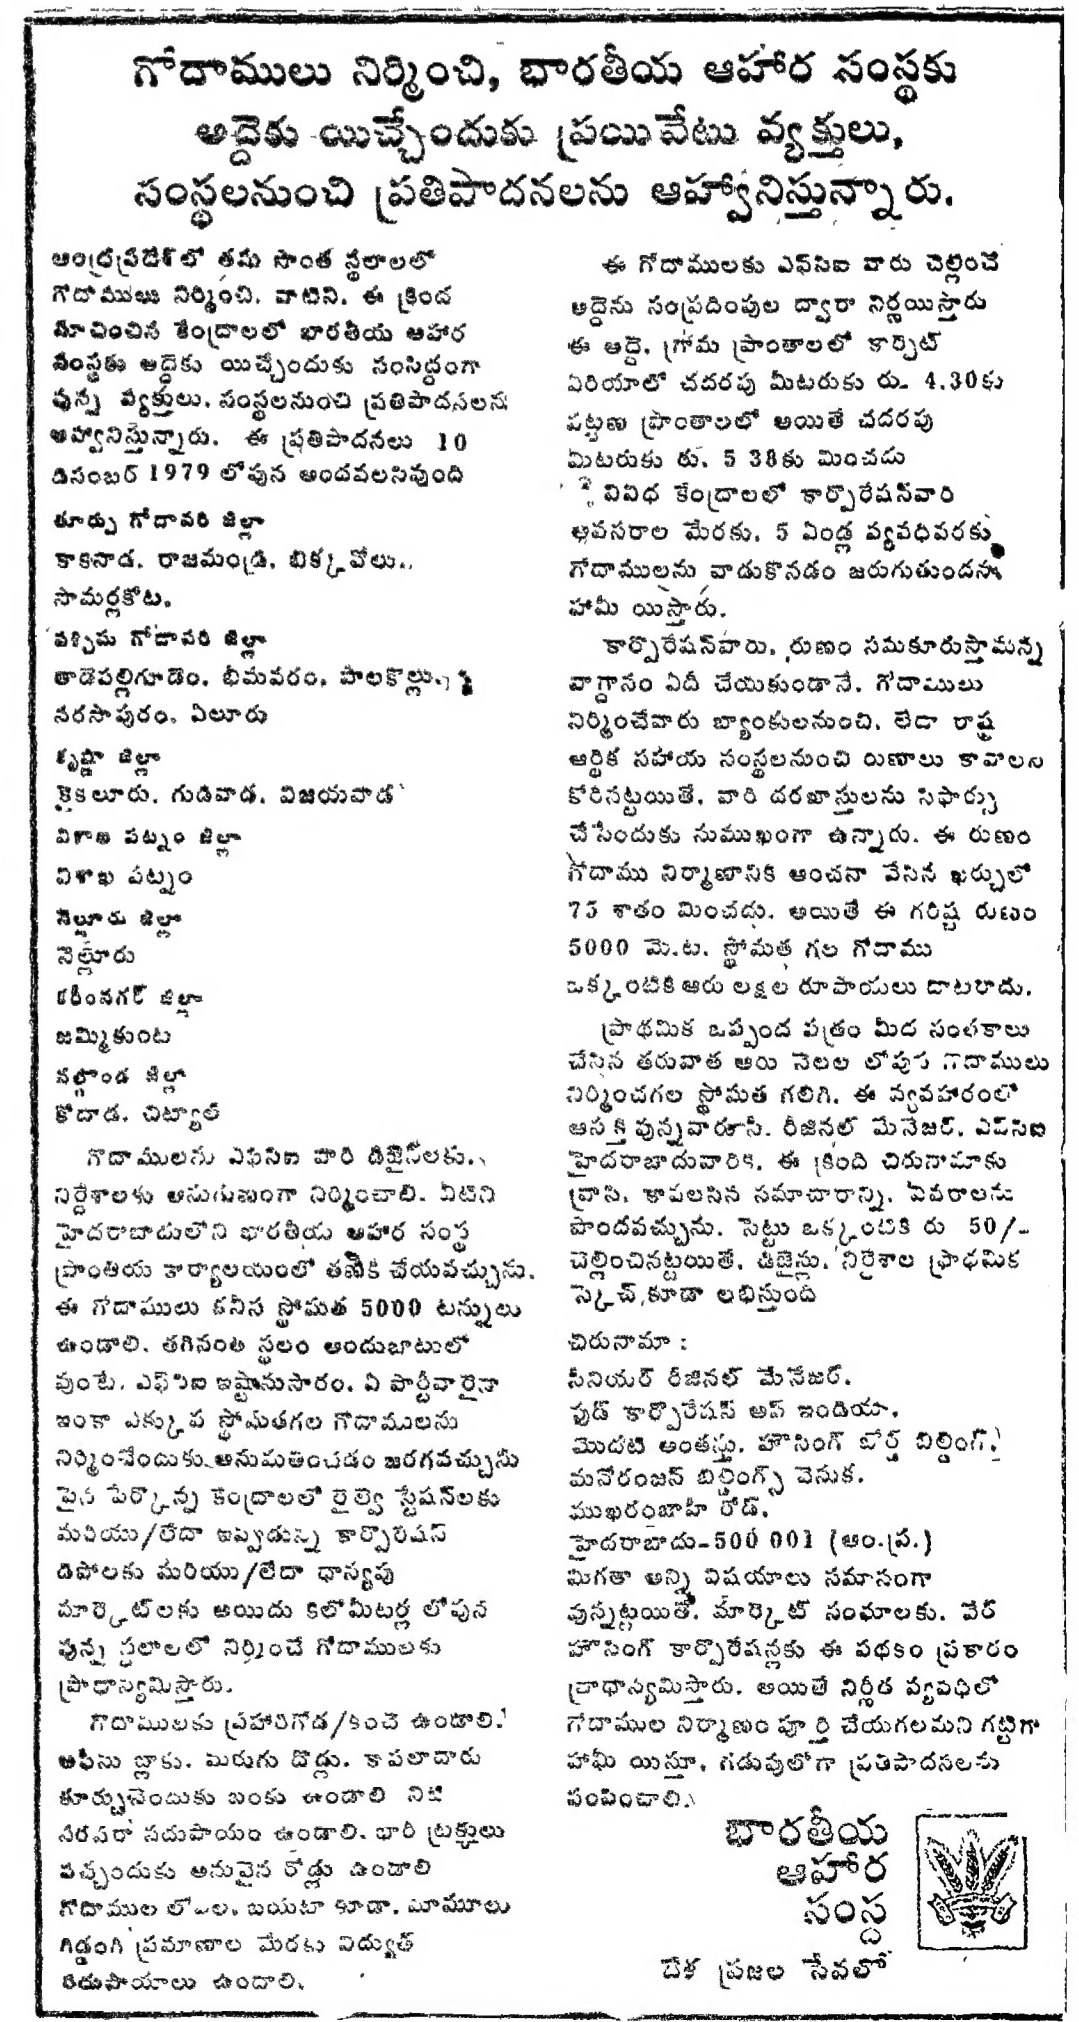 గోదాములు నిర్మించి, భారతీయ ఆహార సంస్థకు
అద్దెకు యిచ్చేందుకు ప్రయివేటు వ్యక్తులు,
సంస్థలనుంచి ప్రతిపాదనలను ఆహ్వానిస్తున్నారు.
ఆంధ్రప్రదేశ్‌లో తమ సొంత స్థలాలలో
గోదాములు నిర్మించి, వాటిని, ఈ క్రింద
సూచించిన కేంద్రాలలో భారతీయ ఆహార
సంస్థకు అద్దెకు యిచ్చేందుకు సంసిద్ధంగా
వున్న వ్యక్తులు, సంస్థలనుంచి ప్రతిపాదనలను
ఆహ్వానిస్తున్నారు. ఈ ప్రతిపాదనలు 10
డిసెంబర్ 1979 లోపున అందవలసివుంది
తూర్పు గోదావరి జిల్లా
కాకినాడ, రాజమండ్రి, బిక్కవోలు,
సామర్లకోట,
పశ్చిమ గోదావరి జిల్లా
తాడెపల్లిగూడెం, భీమవరం, పాలకొల్లు,
నరసాపురం, ఏలూరు
కృష్ణా జిల్లా
కైకలూరు, గుడివాడ, విజయవాడ
విశాఖ పట్నం జిల్లా
విశాఖ పట్నం
నెల్లూరు జిల్లా
నెల్లూరు
కరీంనగర్ జిల్లా
జమ్మికుంట
నల్గొండ జిల్లా
కోదాడ, చిట్యాల్
గోదాములను ఎఫ్‌సిఐ వారి డిజైన్‌లకు,
నిర్దేశాలకు అనుగుణంగా నిర్మించాలి. వీటిని
హైదరాబాదులోని భారతీయ ఆహార సంస్థ
ప్రాంతీయ కార్యాలయంలో తనికి చేయవచ్చును.
ఈ గోదాములు కనీస స్తోమత 5000 టన్నులు
ఉండాలి. తగినంత స్థలం అందుబాటులో
వుంటే, ఎఫ్‌సిఐ ఇష్టానుసారం, ఏ పార్టీవారైనా
ఇంకా ఎక్కువ స్తోమతగల గోదాములను
నిర్మించేందుకు అనుమతించడం జరగవచ్చును
పైన పేర్కొన్న కేంద్రాలలో రైల్వె స్టేషన్‌లకు
మరియు/లేదా ఇప్పుడున్న కార్పొరేషన్
డిపోలకు మరియు/లేదా ధాన్యపు
మార్కెట్‌లకు అయిదు కిలోమీటర్ల లోపున
వున్న స్థలాలలో నిర్మించే గోదాములకు
ప్రాధాన్యమిస్తారు.
గోదాములకు ప్రహారిగోడ/కంచె ఉండాలి.
ఆఫీసు బ్లాకు, మరుగు దొడ్లు, కాపలాదారు
కూర్చునేందుకు బంకు ఉండాలి నీటి
సరఫరా సదుపాయం ఉండాలి. భారీ ట్రక్కులు
వచ్చేందుకు అనువైన రోడ్లు ఉండాలి
గోదాముల లోపల, బయటా కూడా, మామూలు
గిడ్డంగి ప్రమాణాల మేరకు విద్యుత్
సదుపాయాలు ఉండాలి.
ఈ గోదాములకు ఎఫ్‌సిఐ వారు చెల్లించే
అద్దెను సంప్రదింపుల ద్వారా నిర్ణయిస్తారు
ఈ అద్దె, గ్రామ ప్రాంతాలలో కార్పెట్
ఏరియాలో చదరపు మీటరుకు రు. 4.30కు
పట్టణ ప్రాంతాలలో అయితే చదరపు
మీటరుకు రు. 5 38కు మించదు
పై వివిధ కేంద్రాలలో కార్పొరేషన్‌వారి
అవసరాల మేరకు, 5 ఏండ్ల వ్యవధివరకు
గోదాములను వాడుకొనడం జరుగుతుందని
హామీ యిస్తారు.
కార్పొరేషన్‌వారు, రుణం సమకూరుస్తామన్న
వాగ్దానం ఏదీ చేయకుండానే, గోదాములు
నిర్మించేవారు బ్యాంకులనుంచి, లేదా రాష్ట్ర
ఆర్థిక సహాయ సంస్థలనుంచి రుణాలు కావాలని
కోరినట్టయితే, వారి దరఖాస్తులను సిఫార్సు
చేసేందుకు సుముఖంగా ఉన్నారు. ఈ రుణం
గోదాము నిర్మాణానికి అంచనా వేసిన ఖర్చులో
75 శాతం మించదు. అయితే ఈ గరిష్ట రుణం
5000 మె.ట. స్తోమత గల గోదాము
ఒక్కంటికి ఆరు లక్షల రూపాయలు దాటరాదు.
ప్రాథమిక ఒప్పంద పత్రం మీద సంతకాలు
చేసిన తరువాత ఆరు నెలల లోపున గోదాములు
నిర్మించగల స్తోమత గలిగి, ఈ వ్యవహారంలో
ఆసక్తి వున్నవారు సీ. రీజినల్ మేనేజర్, ఎఫ్‌సిఐ
హైదరాబాదువారికి, ఈ క్రింది చిరునామాకు
వ్రాసి, కావలసిన సమాచారాన్ని, వివరాలను
పొందవచ్చును. సెట్టు ఒక్కంటికి రు 50/-
చెల్లించినట్టయితే, డిజైన్లు, నిర్దేశాల ప్రాథమిక
స్కెచ్ కూడా లభిస్తుంది
చిరునామా :
సీనియర్ రీజినల్ మేనేజర్,
ఫుడ్ కార్పొరేషన్ ఆఫ్ ఇండియా,
మొదటి అంతస్తు, హౌసింగ్ బోర్డ్ బిల్డింగ్,
మనోరంజన్ బిల్డింగ్స్ వెనుక,
ముఖరంజాహి రోడ్,
హైదరాబాదు-500 001 (ఆం.ప్ర.)
మిగతా అన్ని విషయాలు సమానంగా
వున్నట్టయితే, మార్కెట్ సంఘాలకు, వేర్
హౌసింగ్ కార్పొరేషన్లకు ఈ పథకం ప్రకారం
ప్రాధాన్యమిస్తారు. అయితే నిర్ణీత వ్యవధిలో
గోదాముల నిర్మాణం పూర్తి చేయగలమని గట్టిగా
హామీ యిస్తూ, గడువులోగా ప్రతిపాదనలను
పంపించాలి.
భారతీయ
ఆహార
సంస్థ
దేశ ప్రజల సేవలో